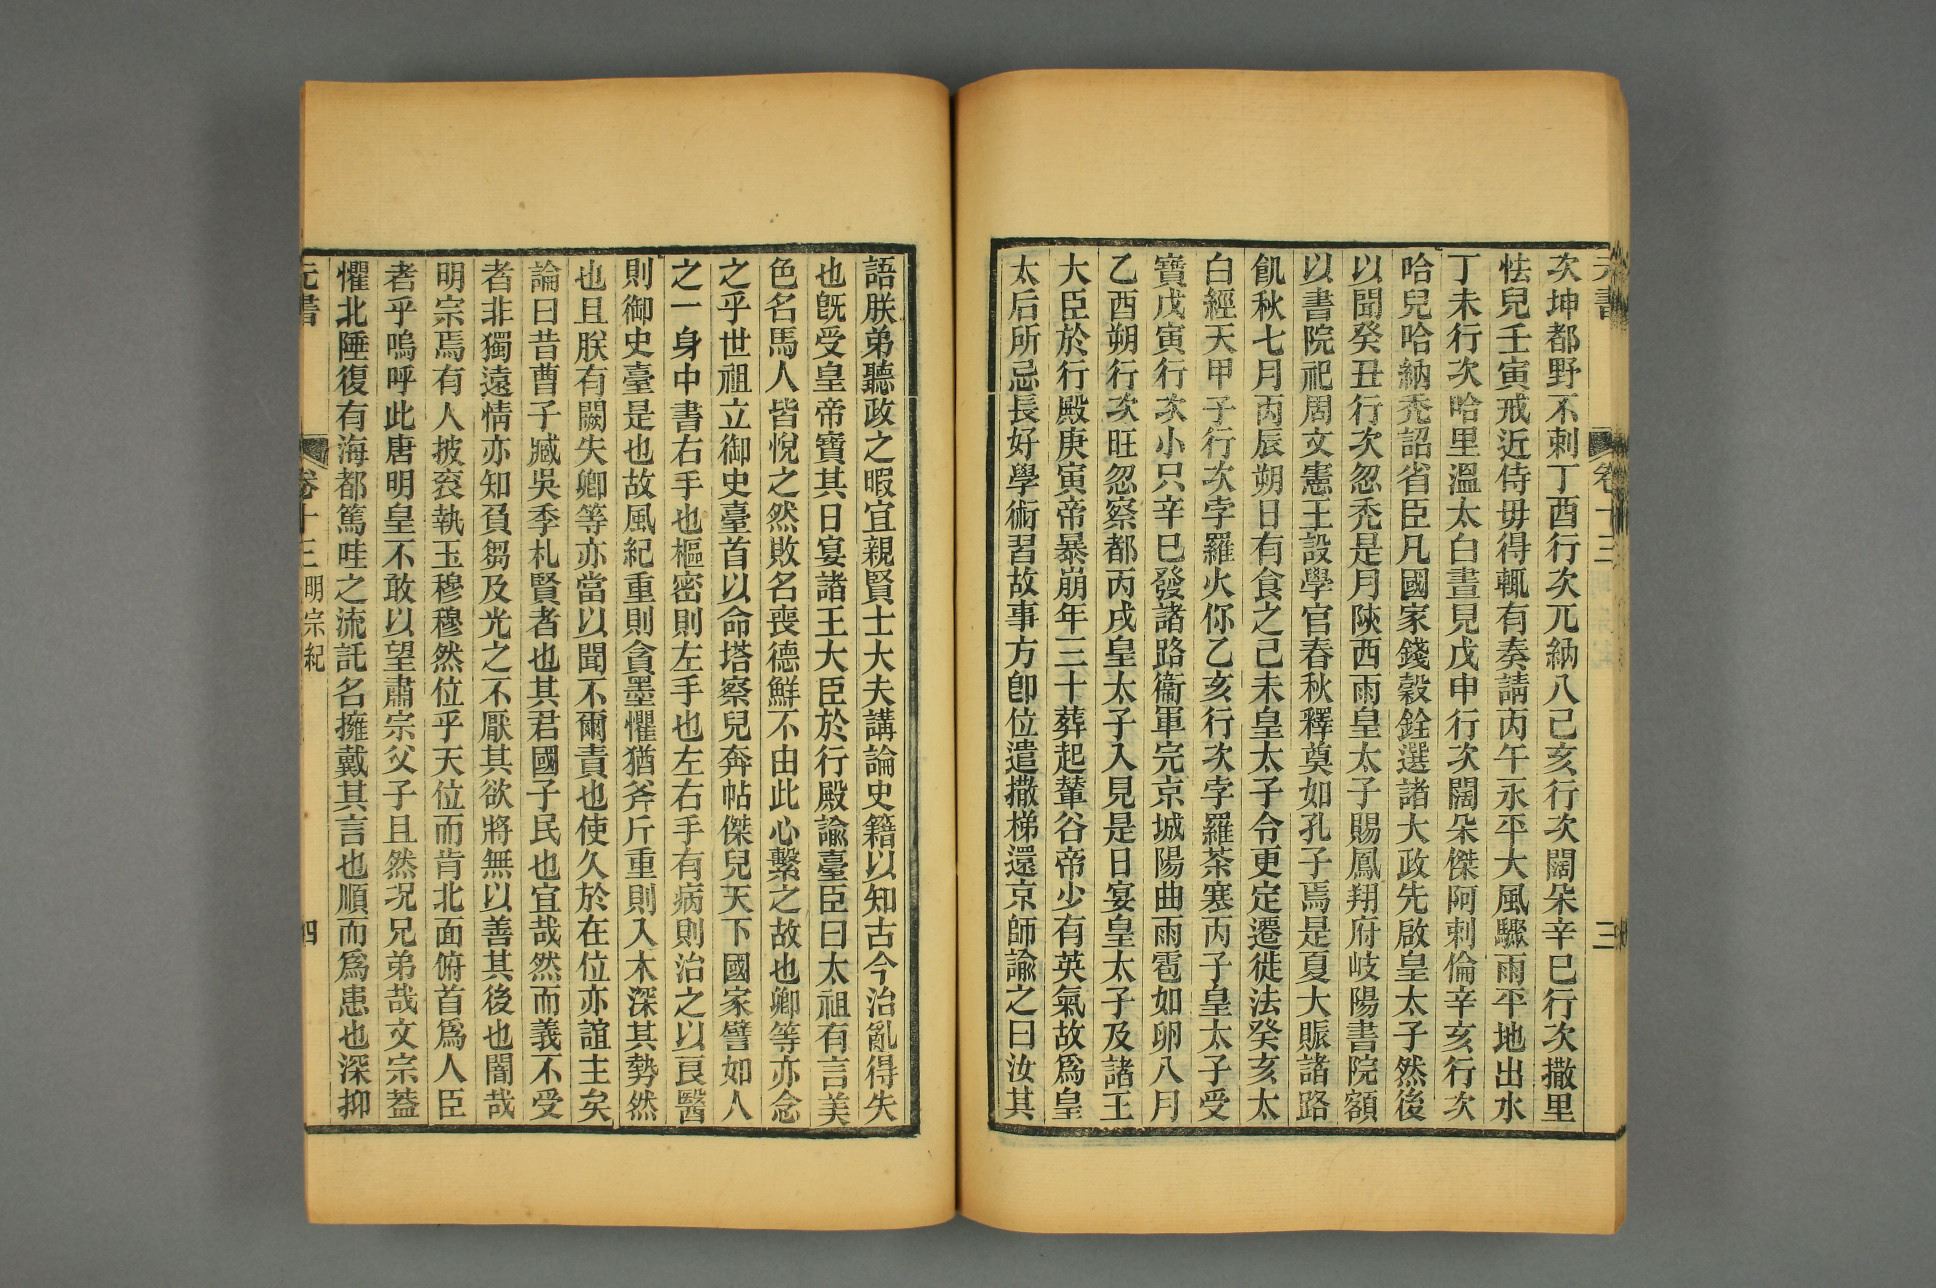 元書 卷十三 三
次坤都野不剌丁酉行次兀納八己亥行次闊朵辛巳行次撒里
怯兒壬寅戒近侍毋得輒有奏請丙午永平大風驟雨平地出水
丁未行次哈里溫太白晝見戊申行次闊朵傑阿剌倫辛亥行次
哈兒哈納禿詔省臣凡國家錢穀銓選諸大政先啟皇太子然後
以聞癸丑行次忽禿是月陝西雨皇太子賜鳳翔府岐陽書院額
以書院祀周文憲王設學官春秋釋奠如孔子焉是夏大賑諸路
飢秋七月丙辰朔日有食之己未皇太子令更定遷徙法癸亥太
白經天甲子行次孛羅火你乙亥行次孛羅荼塞丙子皇太子受
寶戊寅行次小只辛巳發諸路衞軍完京城陽曲雨雹如卵八月
乙酉朔行次旺忽察都丙戌皇太子入見是日宴皇太子及諸王
大臣於行殿庚寅帝暴崩年三十葬起輦谷帝少有英氣故爲皇
太后所忌長好學術習故事方卽位遣撒梯還京師諭之曰汝其
語朕弟聽政之暇宜親賢士大夫講論史籍以知古今治亂得失
也旣受皇帝寶其日宴諸王大臣於行殿諭臺臣曰太祖有言美
色名馬人皆悅之然敗名喪德鮮不由此心繫之故也卿等亦念
之乎世祖立御史臺首以命塔察兒奔帖傑兒天下國家譬如人
之一身中書右手也樞密則左手也左右手有病則治之以良醫
則御史臺是也故風紀重則貪墨懼猶斧斤重則入木深其勢然
也且朕有闕失卿等亦當以聞不爾責也使久於在位亦誼主矣
論曰昔曹子臧吳季札賢者也其君國子民也宜哉然而義不受
者非獨遠情亦知負芻及光之不厭其欲將無以善其後也闇哉
明宗焉有人披袞執玉穆穆然位乎天位而肯北面俯首爲人臣
者乎嗚呼此唐明皇不敢以望肅宗父子且然况兄弟哉文宗葢
懼北陲復有海都篤哇之流託名擁戴其言也順而爲患也深抑
元書 卷十三 明宗紀 四